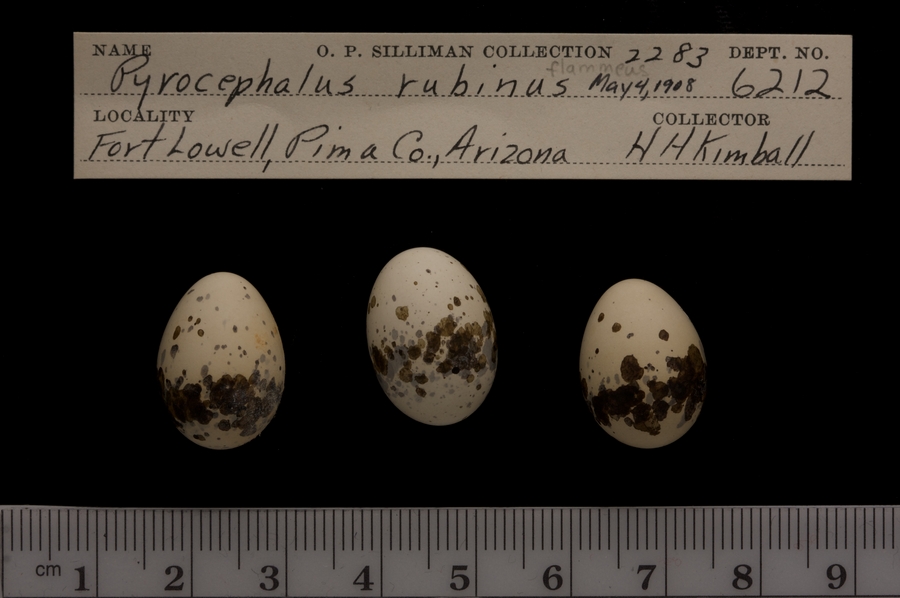 NAME O. P. SILLIMAN COLLECTION 2283 DEPT. NO.
flammeus
Pyrocephalus rubinus May 4, 1908 6212
LOCALITY COLLECTOR
Fort Lowell, Pima Co., Arizona H H Kimball
cm 1 2 3 4 5 6 7 8 9